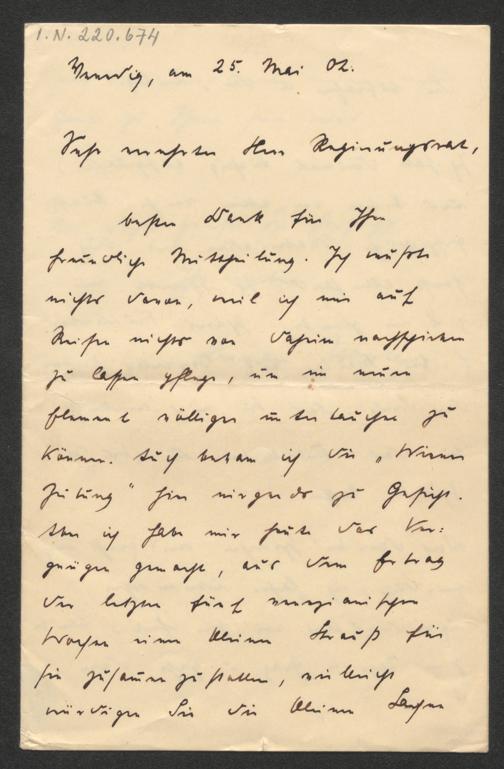 I.N. 220.674
Venedig, am 25. Mai 02.
Sehr verehrter Herr Regierungsrat,
besten Dank für Ihre
freundliche Mittheilung. Ich wußte
nichts davon, weil ich mir auf
Reisen nichts von daheim nachschicken
zu lassen pflege, um im neuen
Element völliger untertauchen zu
können. Auch bekam ich die „Wiener
Zeitung" hier nirgends zu Gesicht.
Aber ich habe mir heute das Ver-
gnügen gemacht, aus dem Ertrag
der letzten fünf venezianischen
Wochen einen kleinen Strauß für
Sie zusammenzustellen, vielleicht
würdigen Sie die kleinen Sachen